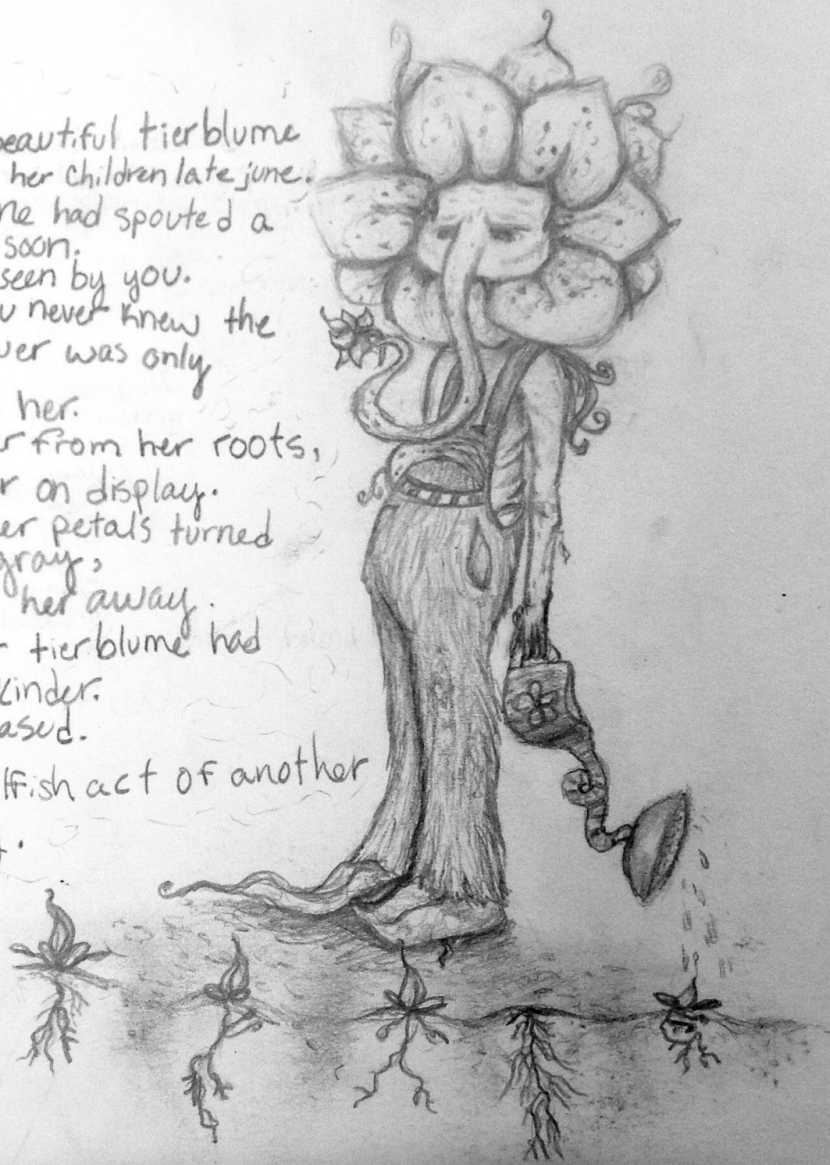 beautiful tierblume
her children late june.
had spouted a
soon.
seen by you.
never knew the
was only
her.
from her roots,
on display.
petals turned
gray,
her away.
tierblume had
kinder.
act of another